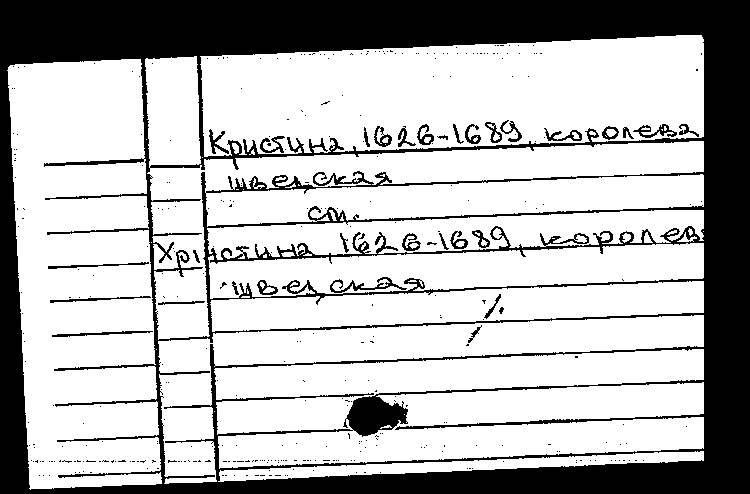 Кристина, 1626-1689, королева
шведская
см.
Христина, 1626-1689, королев
шведская